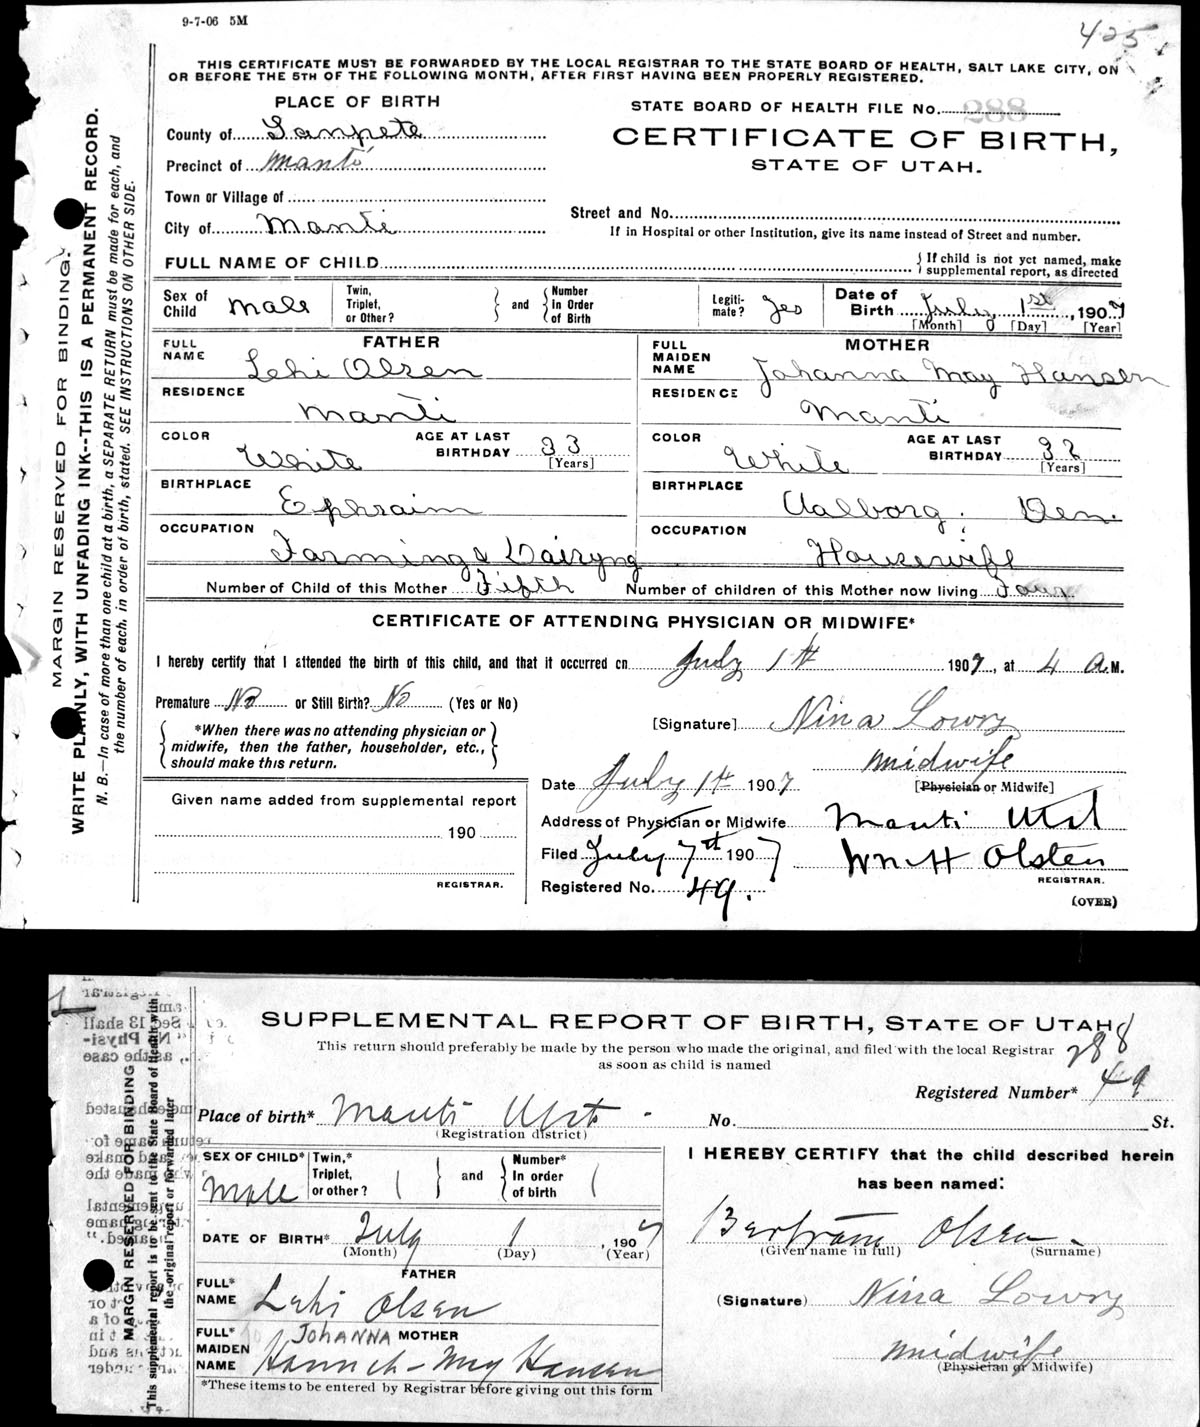 9-7-06 5M
425
THIS CERTIFICATE MUST BE FORWARDED BY THE LOCAL REGISTRAR TO THE STATE BOARD OF HEALTH, SALT LAKE CITY, ON
OR BEFORE THE 5TH OF THE FOLLOWING MONTH, AFTER FIRST HAVING BEEN PROPERLY REGISTERED.
MARGIN RESERVED FOR BINDING.
WRITE PLAINLY, WITH UNFADING INK--THIS IS A PERMANENT RECORD.
N. B.—In case of more than one child at a birth, a SEPARATE RETURN must be made for each, and
the number of each, in order of birth, stated. SEE INSTRUCTIONS ON OTHER SIDE.
PLACE OF BIRTH
County of Sanpete
Precinct of Manti
Town or Village of
City of Manti
STATE BOARD OF HEALTH FILE No. 288
CERTIFICATE OF BIRTH,
STATE OF UTAH.
Street and No.
If in Hospital or other Institution, give its name instead of Street and number.
FULL NAME OF CHILD
If child is not yet named, make
supplemental report, as directed
Sex of Child Male
Twin, Triplet, or Other?
and
Number In Order of Birth
Legiti-mate? Yes
Date of Birth July 1st, 1907
[Month] [Day] [Year]
FATHER
FULL NAME Lehi Olsen
RESIDENCE Manti
COLOR White
AGE AT LAST BIRTHDAY 33
[Years]
BIRTHPLACE Ephraim
OCCUPATION Farming & Dairyng
MOTHER
FULL MAIDEN NAME Johanna May Hansen
RESIDENCE Manti
COLOR White
AGE AT LAST BIRTHDAY 32
[Years]
BIRTHPLACE Aalborg, Den.
OCCUPATION Housewife
Number of Child of this Mother Fifth Number of children of this Mother now living Four
CERTIFICATE OF ATTENDING PHYSICIAN OR MIDWIFE*
I hereby certify that I attended the birth of this child, and that it occurred on July 1th 1907, at 4 A.M.
Premature No or Still Birth? No (Yes or No)
*When there was no attending physician or
midwife, then the father, householder, etc.,
should make this return.
[Signature] Nina Lowry
midwife
[Physician or Midwife]
Date July 1th 1907
Address of Physician or Midwife Manti Utah
Filed July 7th 1907 Wm H Olsten
REGISTRAR.
Registered No. 49.
(OVER)
Given name added from supplemental report
190
REGISTRAR.
SUPPLEMENTAL REPORT OF BIRTH, STATE OF UTAH
This return should preferably be made by the person who made the original, and filed with the local Registrar
as soon as child is named
288
Registered Number* 49
MARGIN RESERVED FOR BINDING
This supplemental report is to be sent to the State Board of Health with
the original report or forwarded later
Place of birth* Manti Utah No. St.
(Registration district)
SEX OF CHILD* Male
Twin,* Triplet, or other?
and
Number* In order of birth
DATE OF BIRTH* July 1, 1907
(Month) (Day) (Year)
FATHER
FULL* NAME Lehi Olsen
MOTHER
JOHANNA
FULL* MAIDEN NAME Hannah May Hansen
*These items to be entered by Registrar before giving out this form
I HEREBY CERTIFY that the child described herein
has been named:
Bertram Olsen
(Given name in full) (Surname)
(Signature) Nina Lowry
midwife
(Physician or Midwife)